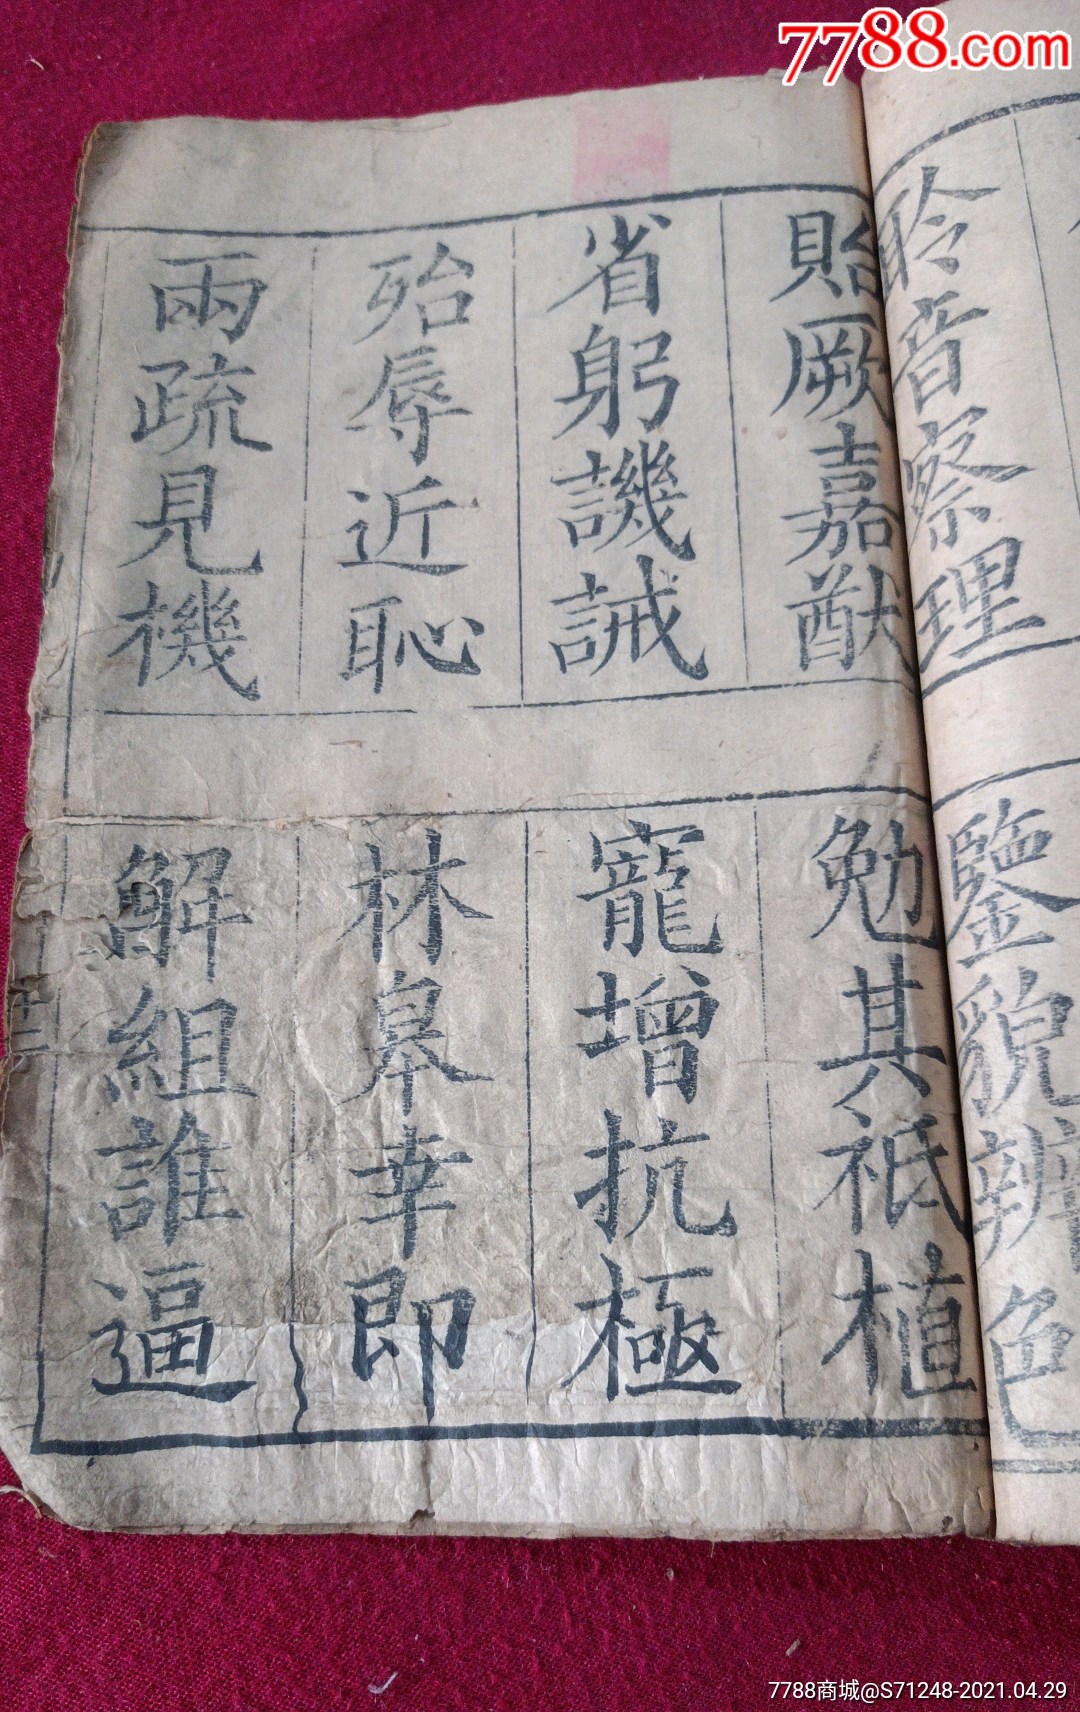 7788.com
聆音察理
鑒貌辨色
貽厥嘉猷
勉其祗植
省躬譏誡
寵增抗極
殆辱近恥
林皋幸即
兩疏見機
解組誰逼
7788商城@S71248-2021.04.29